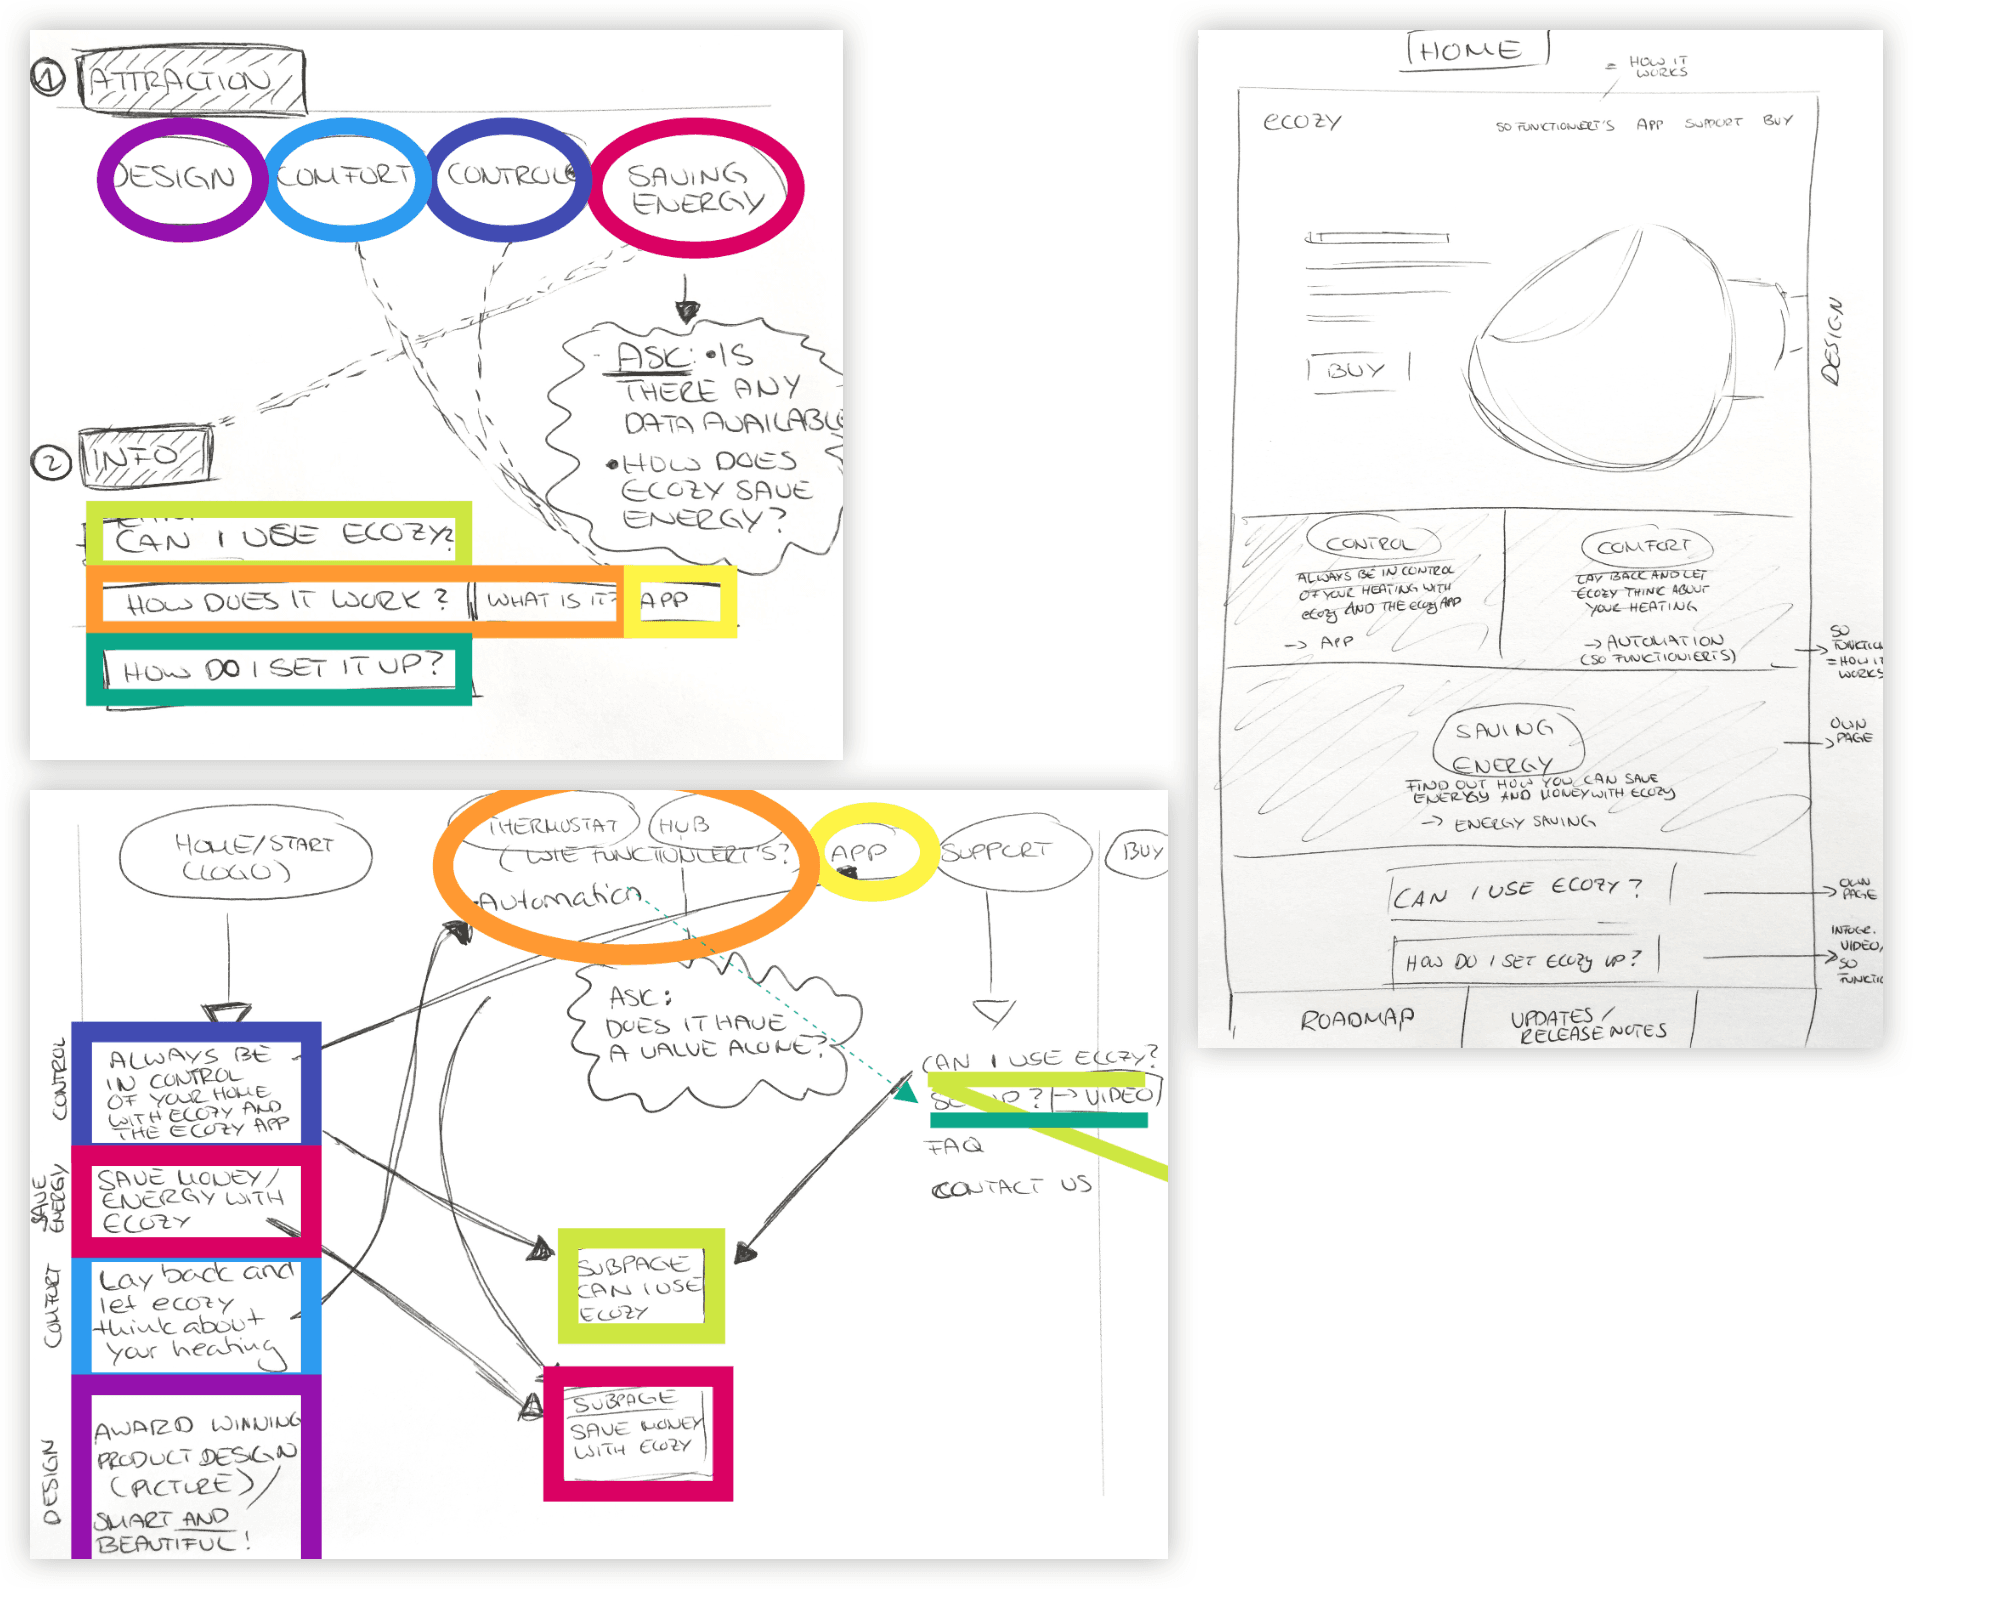 1 ATTRACTION
DESIGN
COMFORT
CONTROL
SAVING
ENERGY
ASK: • IS
THERE ANY
DATA AVAILABLE
• HOW DOES
ECOZY SAVE
ENERGY?
2 INFO
CAN I USE ECOZY?
HOW DOES IT WORK? WHAT IS IT? APP
HOW DO I SET IT UP?
HOME/START
(LOGO)
THERMOSTAT HUB
(WIE FUNCTIONIERT'S?
Automation
APP
SUPPORT
BUY
ASK:
DOES IT HAVE
A VALUE ALONE?
CONTROL
ALWAYS BE
IN CONTROL
OF YOUR HOME
WITH ECOZY AND
THE ECOZY APP
SAVE
ENERGY
SAVE MONEY/
ENERGY WITH
ECOZY
COMFORT
Lay back and
let ecozy
think about
your heating
DESIGN
AWARD WINNING
PRODUCT DESIGN
(PICTURE)/
SMART AND
BEAUTIFUL!
SUBPAGE
CAN I USE
ECOZY
SUBPAGE
SAVE MONEY
WITH ECOZY
CAN I USE ECOZY?
→ VIDEO
FAQ
CONTACT US
HOME
= HOW IT
WORKS
ecozy
SO FUNKTIONIERT'S APP SUPPORT BUY
BUY
DESIGN
CONTROL
ALWAYS BE IN CONTROL
OF YOUR HEATING WITH
ecozy AND THE ecozy APP
→ APP
COMFORT
LAY BACK AND LET
ECOZY THINK ABOUT
YOUR HEATING
→ AUTOMATION
(SO FUNCTIONIERTS)
SO
= HOW IT
WORKS
SAVING
ENERGY
FIND OUT HOW YOU CAN SAVE
ENERGY AND MONEY WITH ECOZY
→ ENERGY SAVING
OWN
PAGE
CAN I USE ECOZY?
OWN
PAGE
HOW DO I SET ECOZY UP?
INFOGR.
VIDEO,
SO
ROADMAP
UPDATES/
RELEASE NOTES